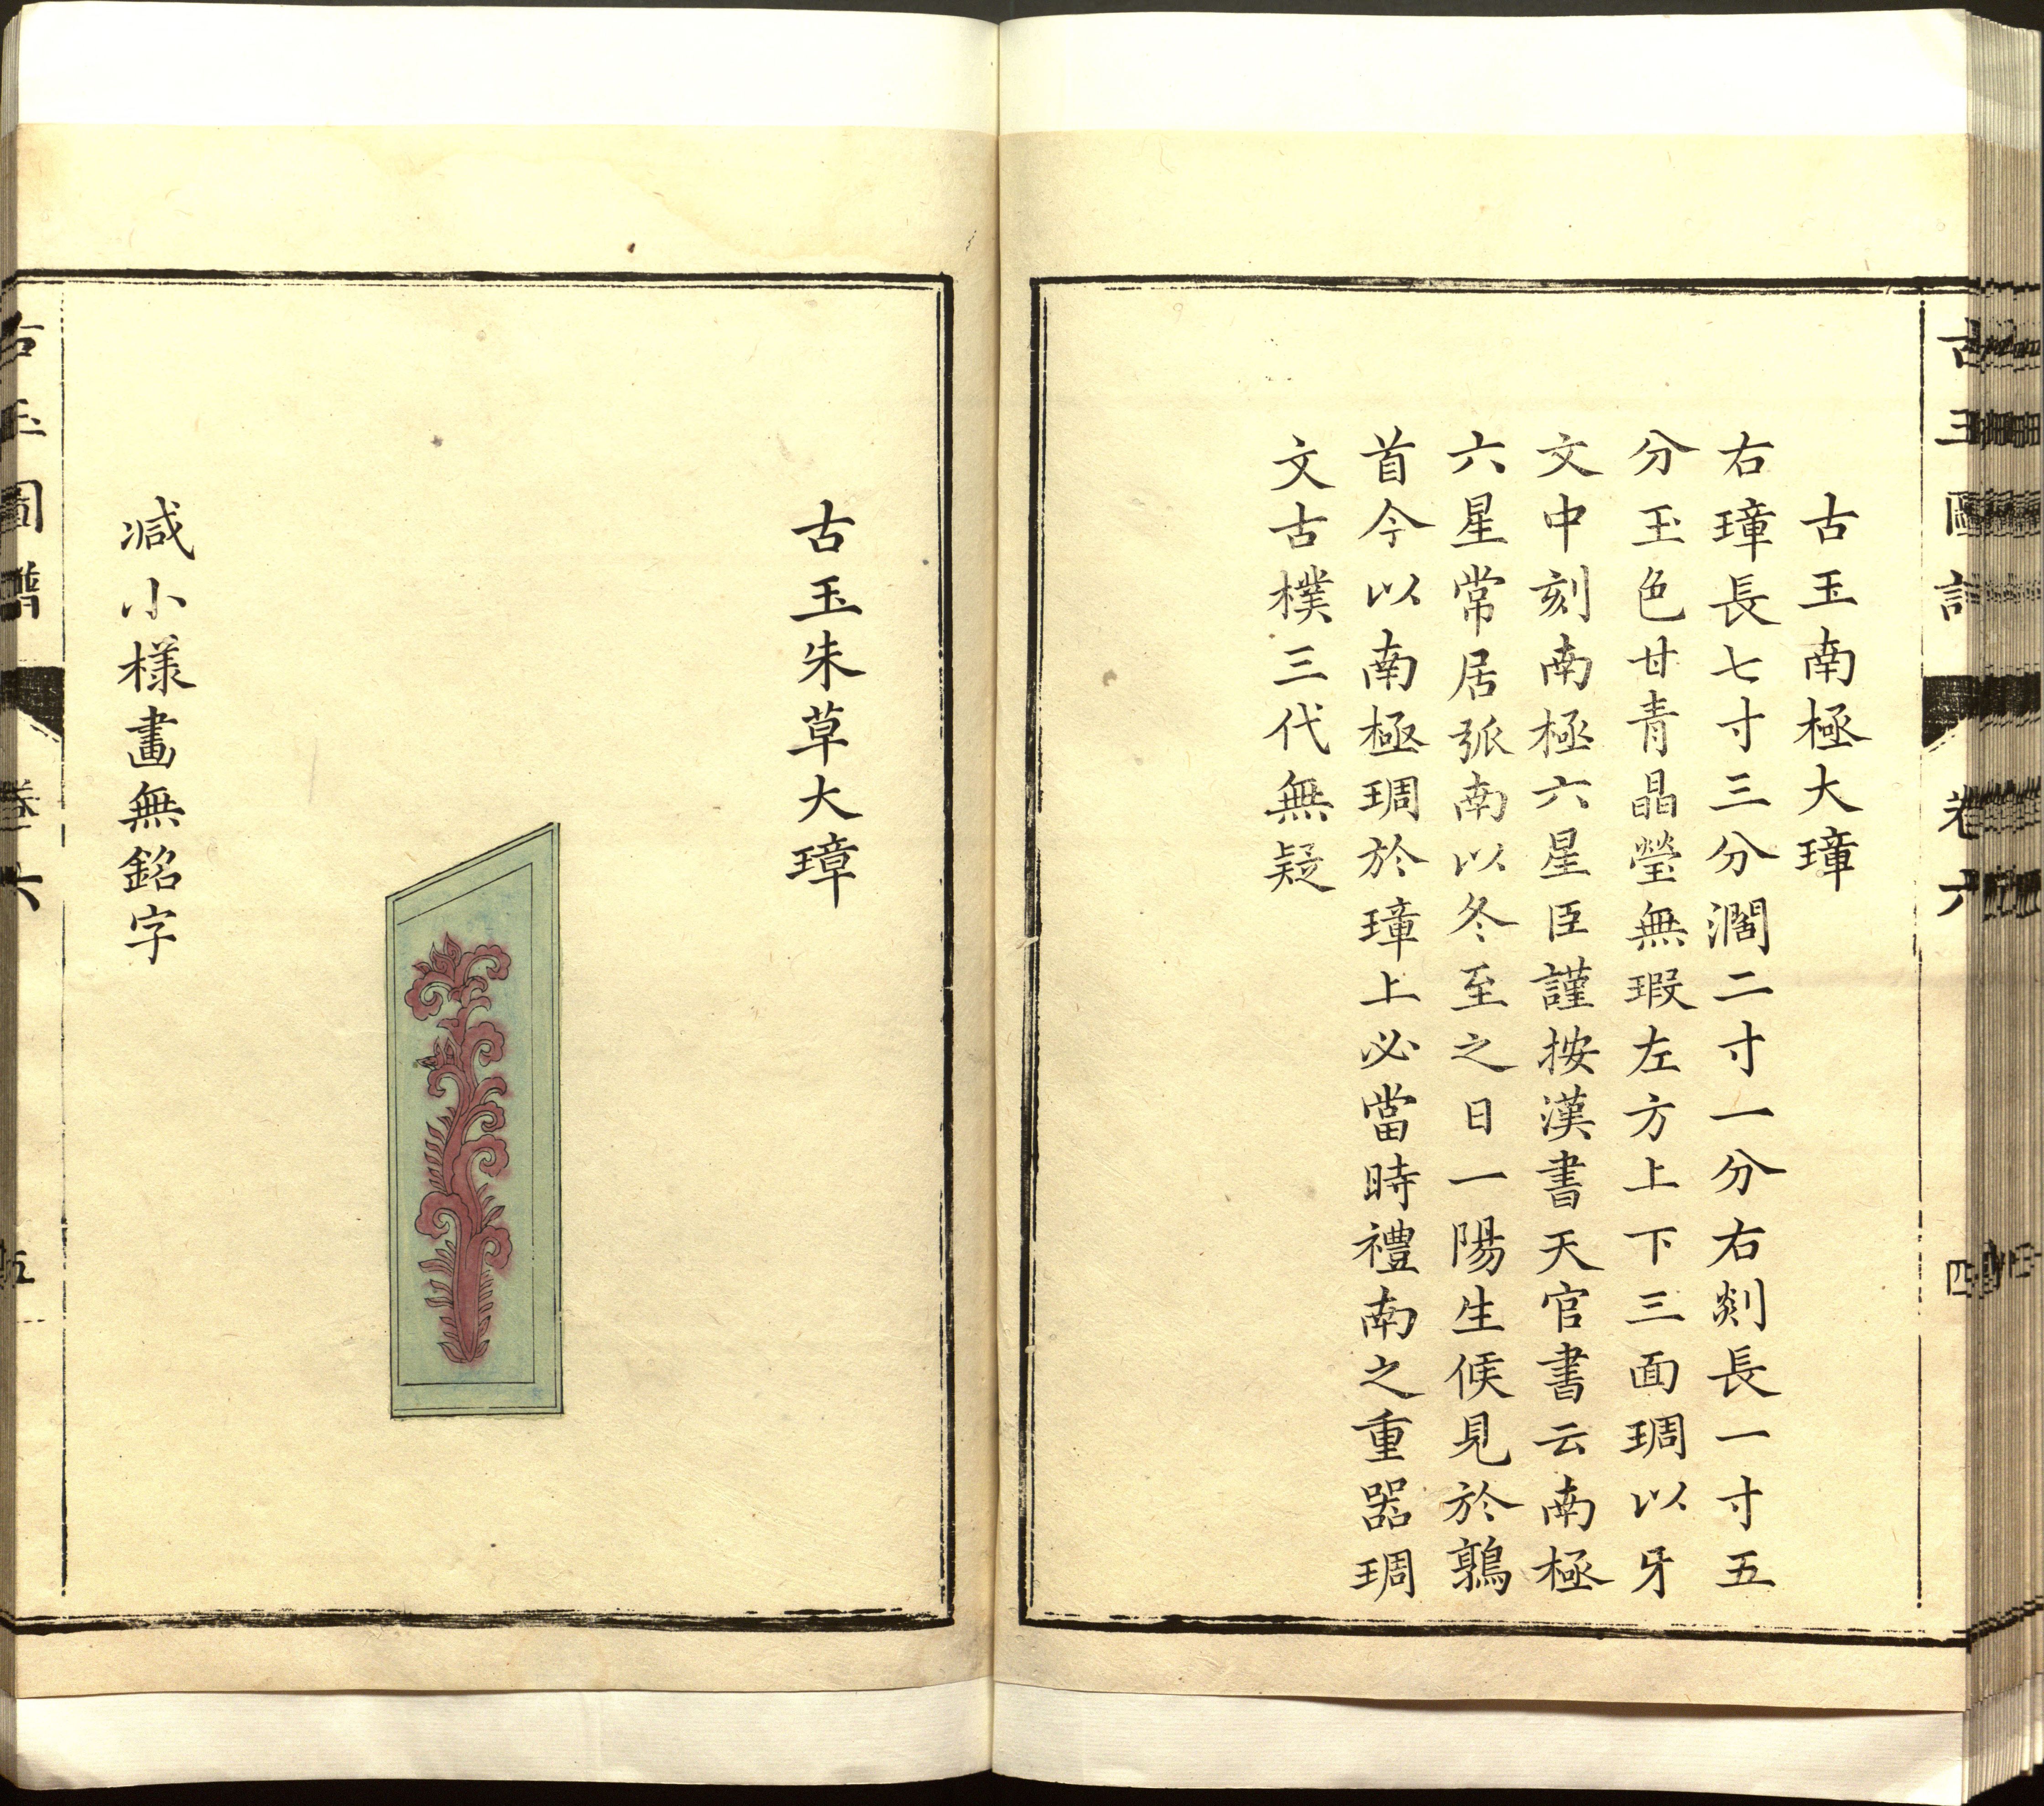 古玉南極大璋
右璋長七寸三分濶二寸一分右剡長一寸五
分玉色甘青晶瑩無瑕左方上下三面琱以牙
文中刻南極六星臣謹按漢書天官書云南極
六星常居弧南以冬至之日一陽生候見於鶉
首今以南極琱於璋上必當時禮南之重器琱
文古樸三代無疑
古玉朱草大璋
減小樣畫無銘字
古玉圖譜 卷六 五